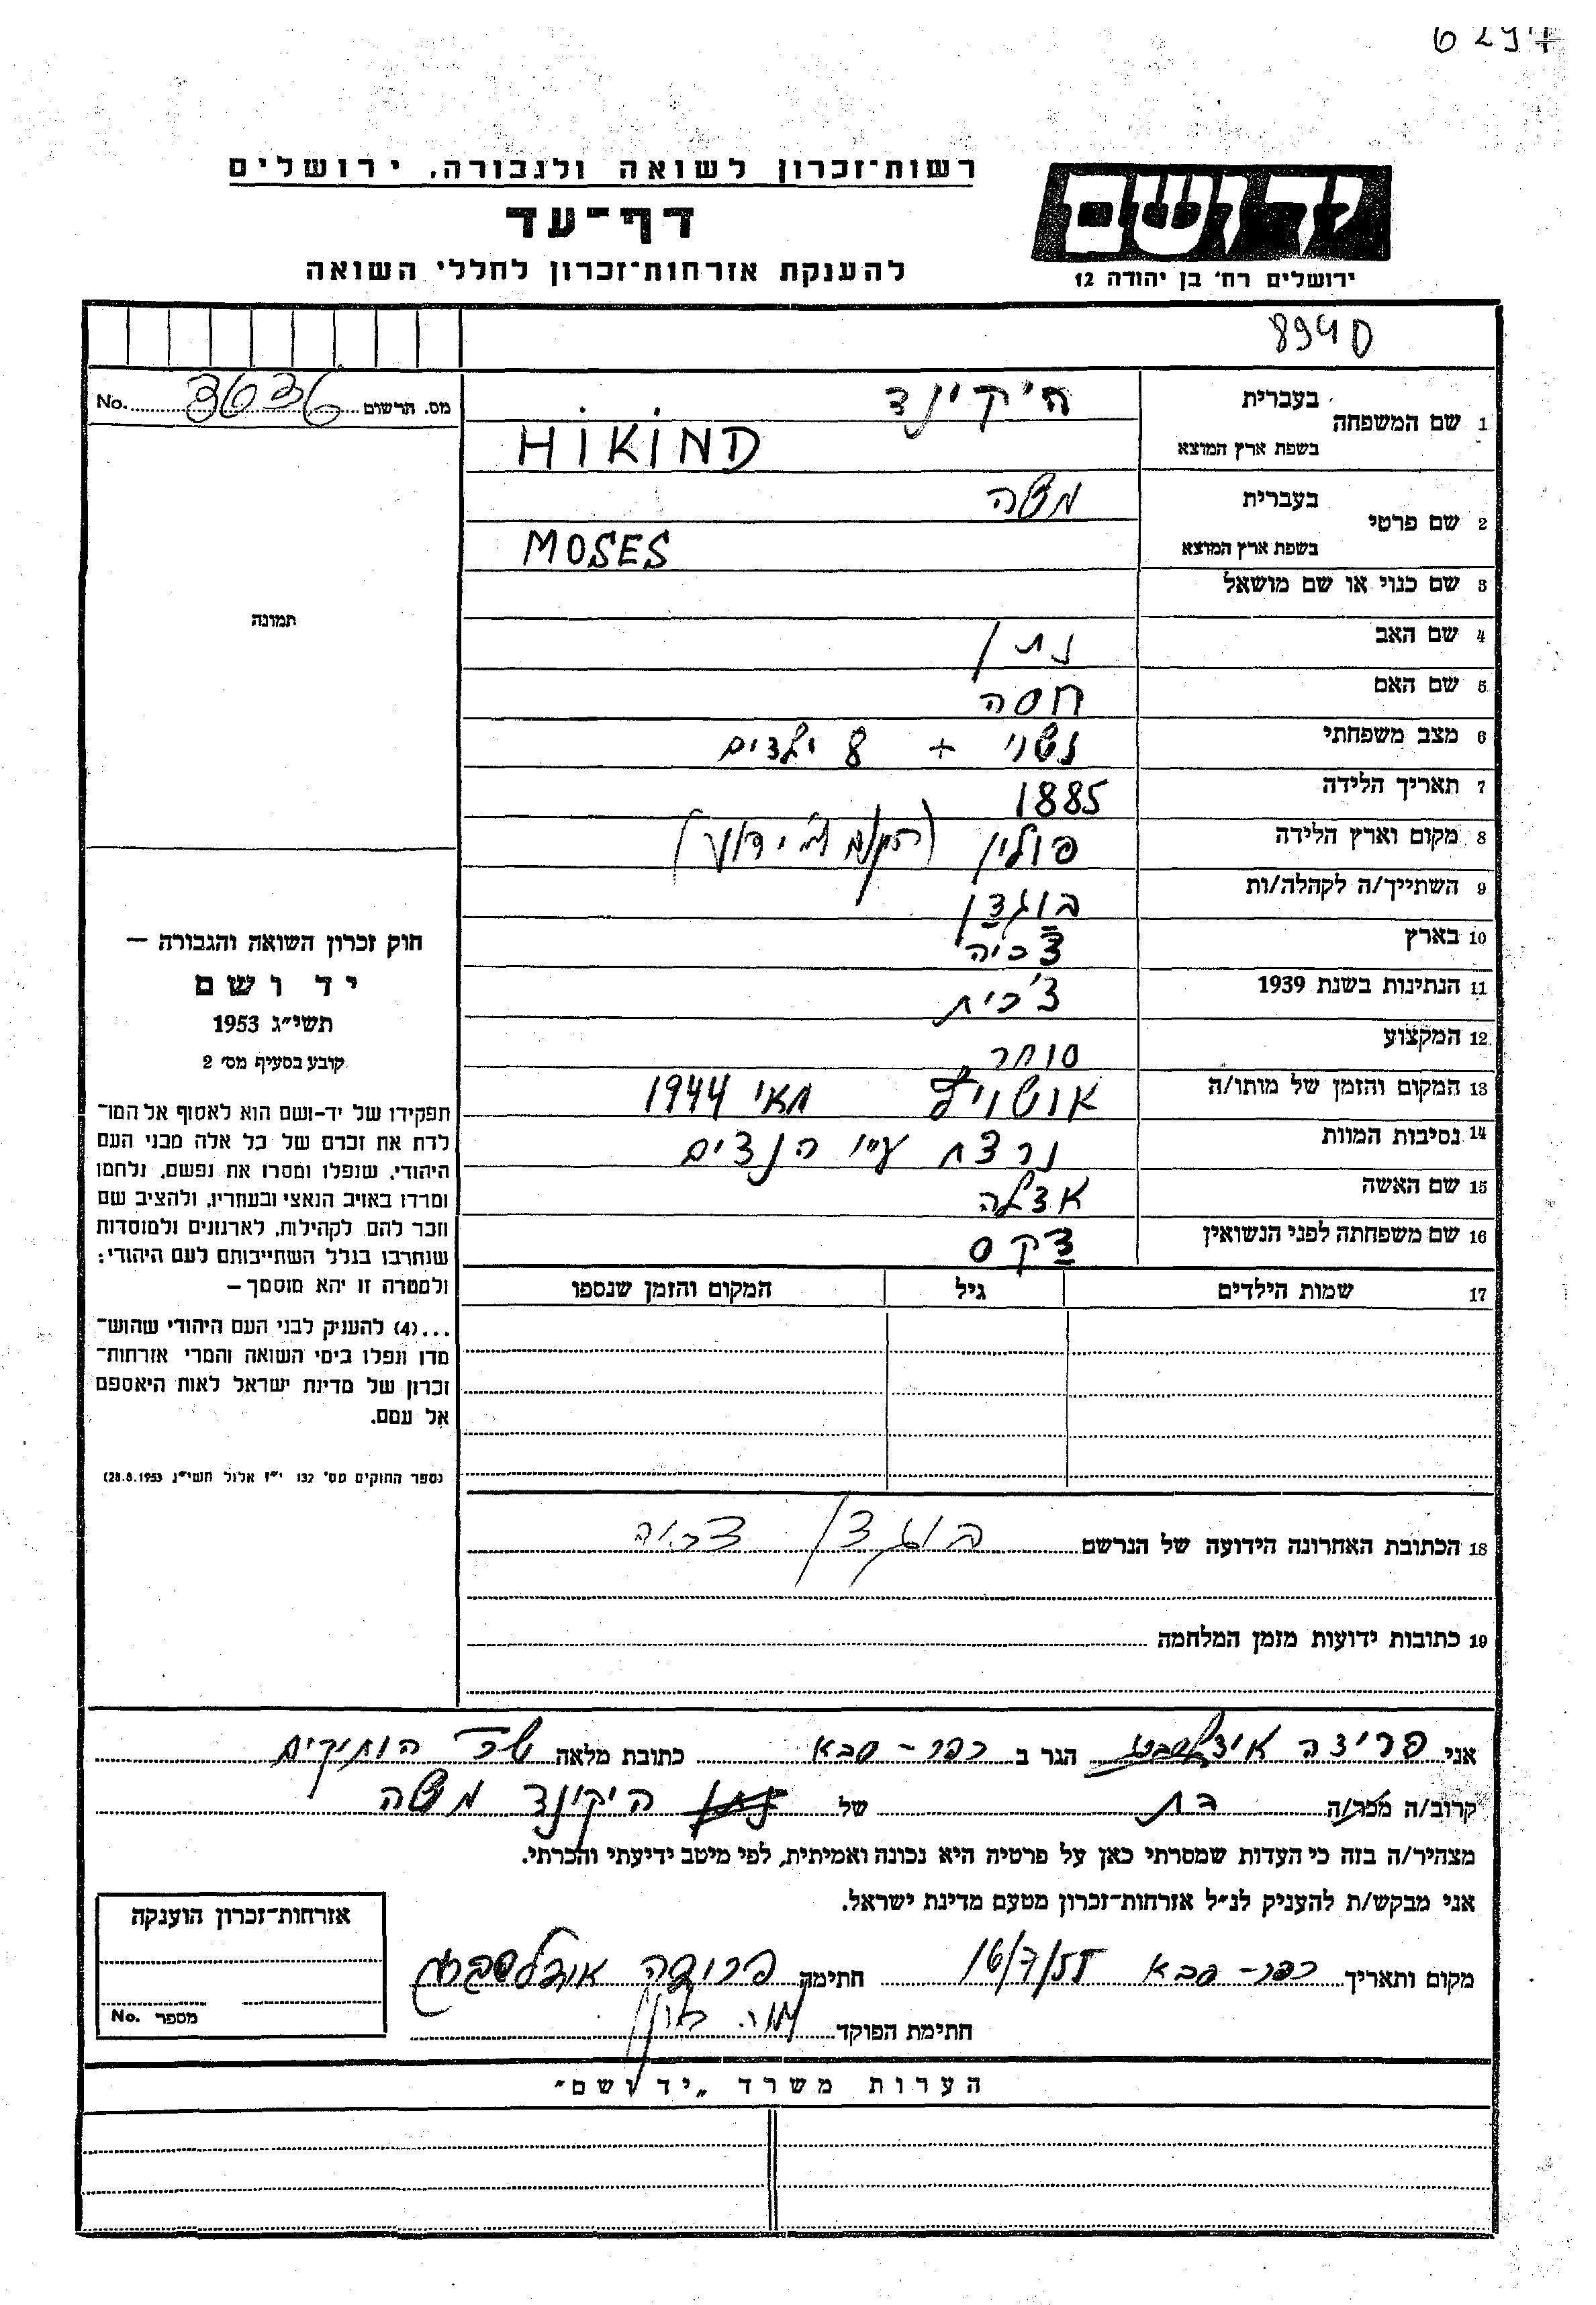 6297
רשות־זכרון לשואה ולגבורה, ירושלים
דף־עד
להענקת אזרחות־זכרון לחללי השואה
יד ושם
ירושלים רח' בן יהודה 12
8940
מס. הרשום No.
1 שם המשפחה
בעברית היקינד
בשפת ארץ המוצא HIKIND
2 שם פרטי
בעברית משה
בשפת ארץ המוצא MOSES
3 שם כנוי או שם מושאל
תמונה
4 שם האב נתן
5 שם האם חסה
6 מצב משפחתי נשוי + 8 ילדים
7 תאריך הלידה 1885
8 מקום וארץ הלידה פולין (המקום לא ידוע)
9 השתייך/ה לקהלה/ות בוגדן
10 בארץ צ'כיה
11 הנתינות בשנת 1939 צ'כית
12 המקצוע סוחר
13 המקום והזמן של מותו/ה אושויץ מאי 1944
14 נסיבות המוות נרצח ע"י הנצים
15 שם האשה אדלה
16 שם משפחתה לפני הנשואין דקס
17 שמות הילדים גיל המקום והזמן שנספו
חוק זכרון השואה והגבורה —
יד ושם
תשי"ג 1953
קובע בסעיף מס' 2
תפקידו של יד-ושם הוא לאסוף אל המו־
לדת את זכרם של כל אלה מבני העם
היהודי, שנפלו ומסרו את נפשם, נלחמו
ומרדו באויב הנאצי ובעוזריו, ולהציב שם
וזכר להם לקהילות, לארגונים ולמוסדות
שנחרבו בגלל השתייכותם לעם היהודי;
ולמטרה זו יהא מוסמך —
...(4) להעניק לבני העם היהודי שהוש־
מדו ונפלו בימי השואה והמרי אזרחות־
זכרון של מדינת ישראל לאות היאספם
אל עמם.
(ספר החוקים מס' 132 י"ז אלול תשי"ג 28.8.1953)
18 הכתובת האחרונה הידועה של הנרשם בוגדן צכיה
19 כתובות ידועות מזמן המלחמה
אני פרידה הגר ב כפר-סבא כתובת מלאה שכ' הותיקים
קרוב/ה מכר/ה בת של נתן היקינד משה
מצהיר/ה בזה כי העדות שמסרתי כאן על פרטיה היא נכונה ואמיתית, לפי מיטב ידיעתי והכרתי.
אני מבקש/ת להעניק לנ"ל אזרחות־זכרון מטעם מדינת ישראל.
מקום ותאריך כפר-סבא 16/7/55 חתימה פרידה
חתימת הפוקד
אזרחות־זכרון הוענקה
מספר No.
הערות משרד „יד ושם"